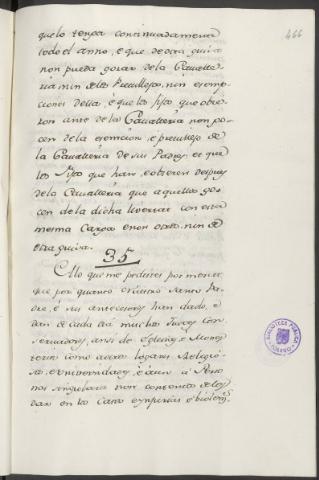 466
quelo tenga continuadamente
todo el anno, è que de otra guisa
non pueda gozar dela Cavalle
ria nin delos Previllejos, nin exemp-
ciones della; è que los fijos que obie-
ron ante dela Cavalleria non go-
cen dela exemcion, è previllejo de
la Cavalleria de sus Padres, et que
los fijos que han, è obieren despues
dela Cavalleria que aquellos go-
cen dela dicha livertat con esta
mesma Carga è non otros, nin de
otra guisa.
35
A lo que me pedistes por merced
que por quanto el nuestro Santo Pa-
dre, è sus antecesores han dado, è
dan de cada dia muchos Jueces Con-
servadores, asi de Eglesias, è Mones-
terios como à otros logares Religio-
sos, è Universidades, è aun à Perso
nas singulares non contentos de los
dar en los Casos è injurias è violencias
BIBLIOTECA PUBLICA
TOLEDO